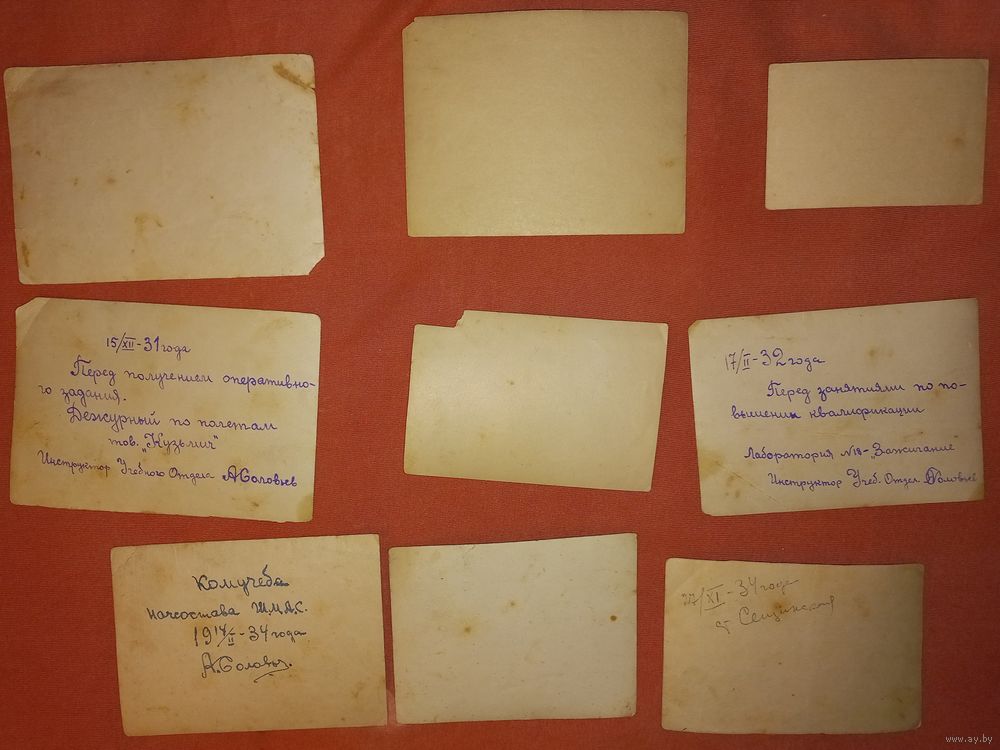 15/XII-31 года
Перед получением оперативно-
го задания.
Дежурный по полетам
тов. „Кузьмич"
Инструктор Учебного Отдела АСоловьев
17/II-32 года
Перед занятиями по по-
вышении квалификации
Лаборатория №18-„Зажигание"
Инструктор Учеб. Отдел АСоловьев
Комучеба
начсостава Ш.М.А.С.
19 14/II-34 года
А.Соловьев.
27/XI-34 года
ст Сещинская
www.ay.by